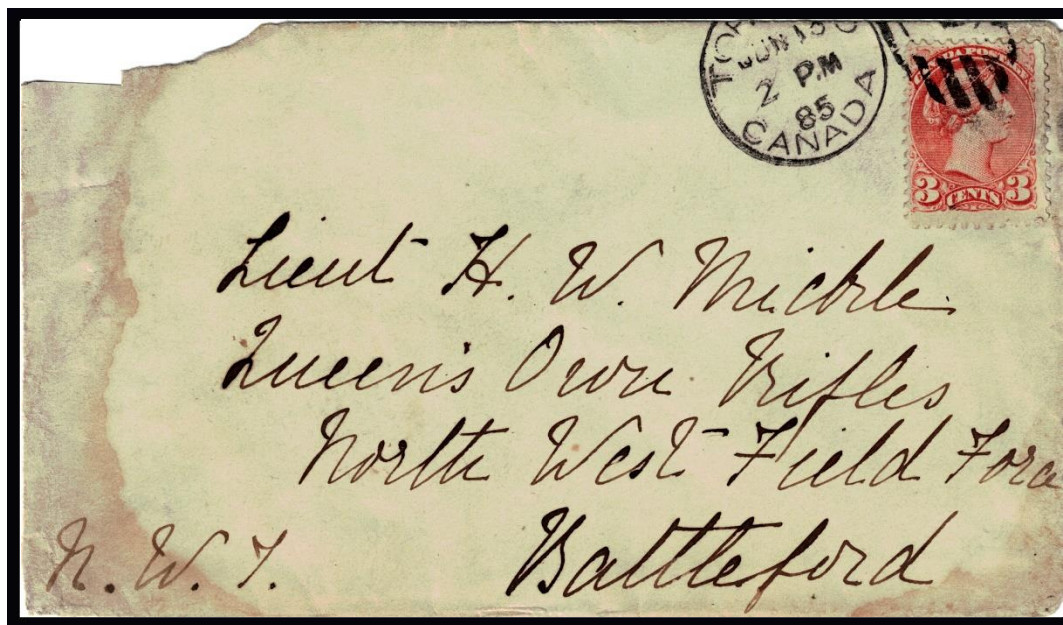 JUN 13
2 P.M
85
CANADA
CANADA POSTAGE
3 CENTS 3
Lieut H. W. Mickle
Queen's Own Rifles
North West Field Force
Battleford
N. W. T.